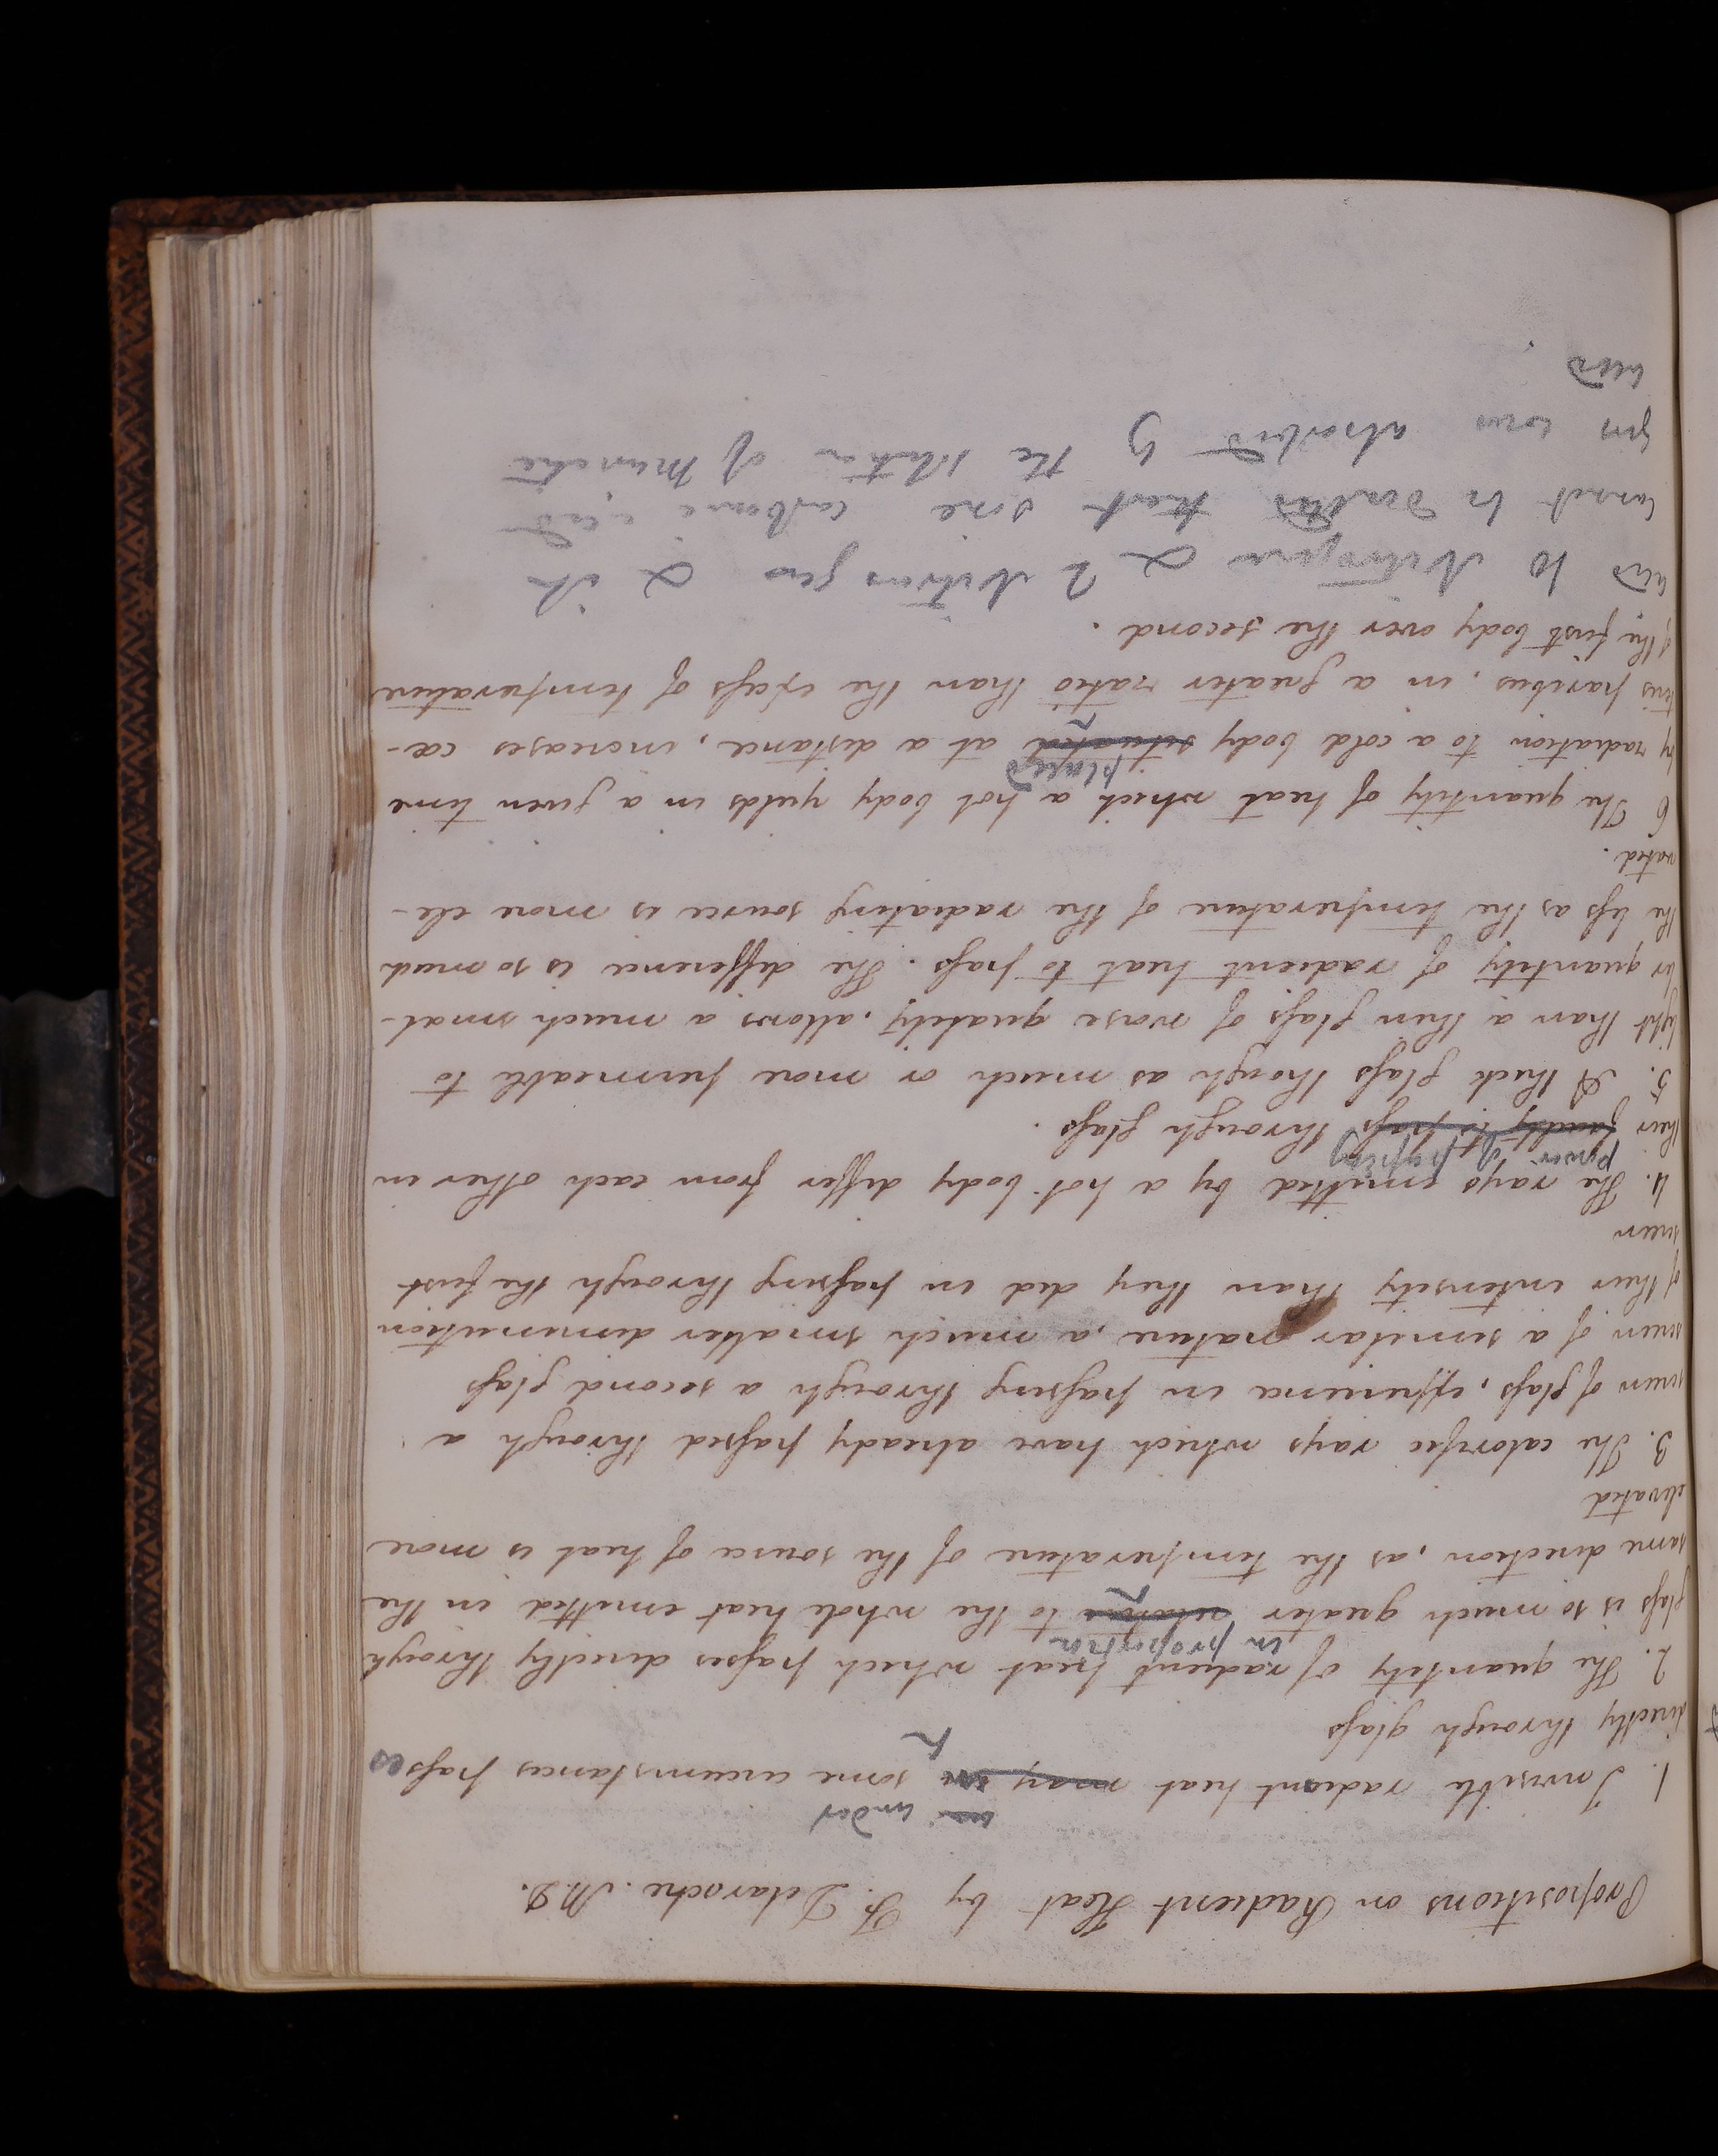 Propositions on Radient Heat by F. Delaroche. M.D.
under
1. Invisible radiant heat may in some circumstances passes
directly through glass
2. The quantity of radient heat which passes directly through
in proportion
glass is so much greater relative to the whole heat emitted in the
same direction, as the temperature of the source of heat is more
elevated
3. The calorific rays which have already passed through a
screen of glass, experience in passing through a second glass
screen of a similar nature, a much smaller diminution
of their intensity than they did in passing through the first
screen
4. The rays emitted by a hot body differ from each other in
power of passing
their faculty to pass through glass.
5. A thick glass though as much or more permeable to
light than a thin glass of worse quality, allows a much smal-
ler quantity of radient heat to pass. The difference is so much
the less as the temperature of the radiating source is more ele-
vated.
6 The quantity of heat which a hot body yields in a given time
placed
by radiation to a cold body situated at a distance, increases cæ-
teris paribus, in a greater ratio than the excess of temperature
of the first body over the second.
acid 10 Nitrogene & 2 Nitrous gas & it
cannot be doubted that some carbonic acid
gas was absorbed by the solution of muriatic
acid.